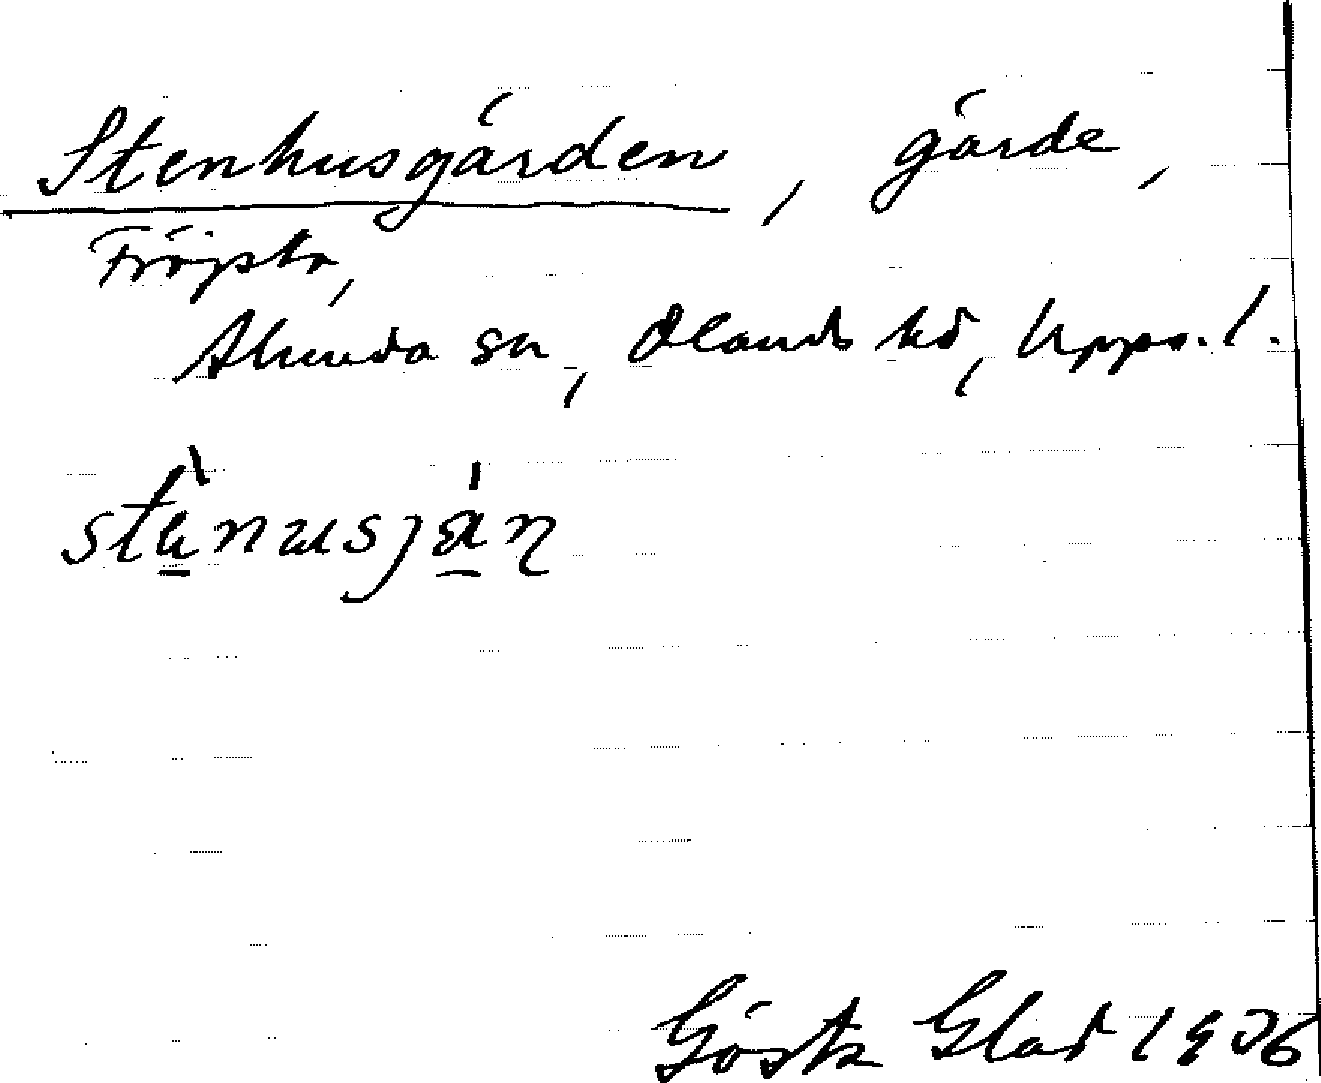 Stenhusgärden, gärde,
Fröjsta,
Alunda sn, Olands hd, Upps.l.
Gösta Glad 1936